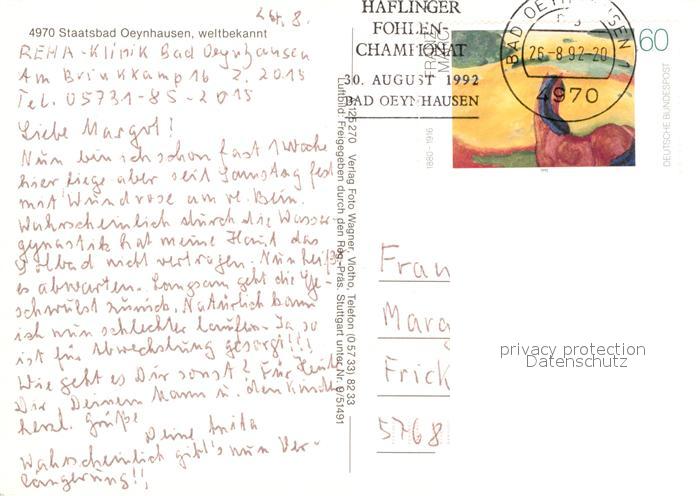 26. 8.
4970 Staatsbad Oeynhausen, weltbekannt
REHA-Klinik Bad Oeynhausen
Am Brinkkamp 16 Z. 2015
Tel. 05731-85-2015
Liebe Margot!
Nun bin ich schon fast 1 Woche
hier liege aber seit Samstag fest
mit Wundrose am re. Bein.
Wahrscheinlich durch die Wasser-
gymnastik hat meine Haut das
Solbad nicht vertragen. Nun heißt
es abwarten. Langsam geht die Ge-
schwulst zurück. Natürlich kann
ich nun schlechter laufen. Ja, so
ist für Abwechslung gesorgt!!!
Wie geht es Dir sonst? Für Heute
Dir, Deinem Mann u. den Kindern
herzl. Grüße
Deine Anita
Wahrscheinlich gibt's nun Ver-
längerung!!,
125 270 Verlag Foto Wagner, Vlotho, Telefon (0 57 33) 82 33
Luftbild: Freigegeben durch den Reg.-Präs. Stuttgart unter Nr. 9/51491
HAFLINGER
FOHLEN-
CHAMPIONAT
30. AUGUST 1992
BAD OEYNHAUSEN
BAD OEYNHAUSEN
26-8.92-20
4970
FRANZ MARC
1880-1916
60
DEUTSCHE BUNDESPOST
Fran
Marg
Frick
5768
privacy protection
Datenschutz